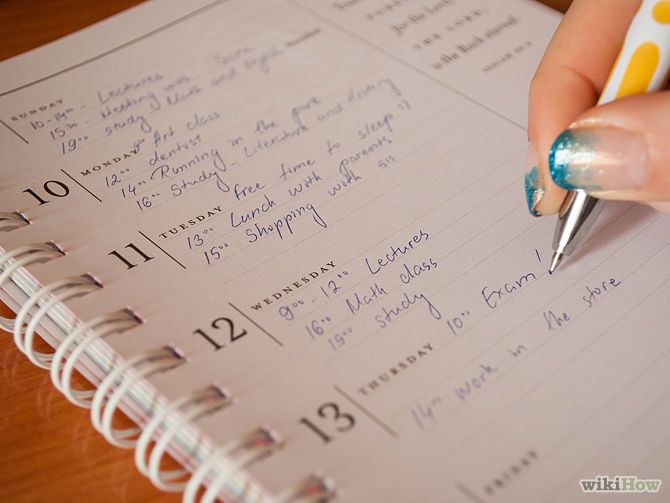 for the Lord,
THE LORD,
is the Rock eternal.
ISAIAH 26:4
SUNDAY
10-14⁰⁰ - Lectures
15³⁰ - Meeting with
19⁰⁰ study Math and English
MONDAY
9⁰⁰ Art class
12⁰⁰ dentist
14⁰⁰ Running in the park
16⁰⁰ Study - Literature and History
10
TUESDAY
free time to sleep!!
13⁰⁰ Lunch with parents
15⁰⁰ Shopping with sis
11
WEDNESDAY
9⁰⁰ - 12⁰⁰ Lectures
16⁰⁰ Math class
19⁰⁰ study
12
THURSDAY
10⁰⁰ Exam!
14⁰⁰ work in the store
13
FRIDAY
wikiHow